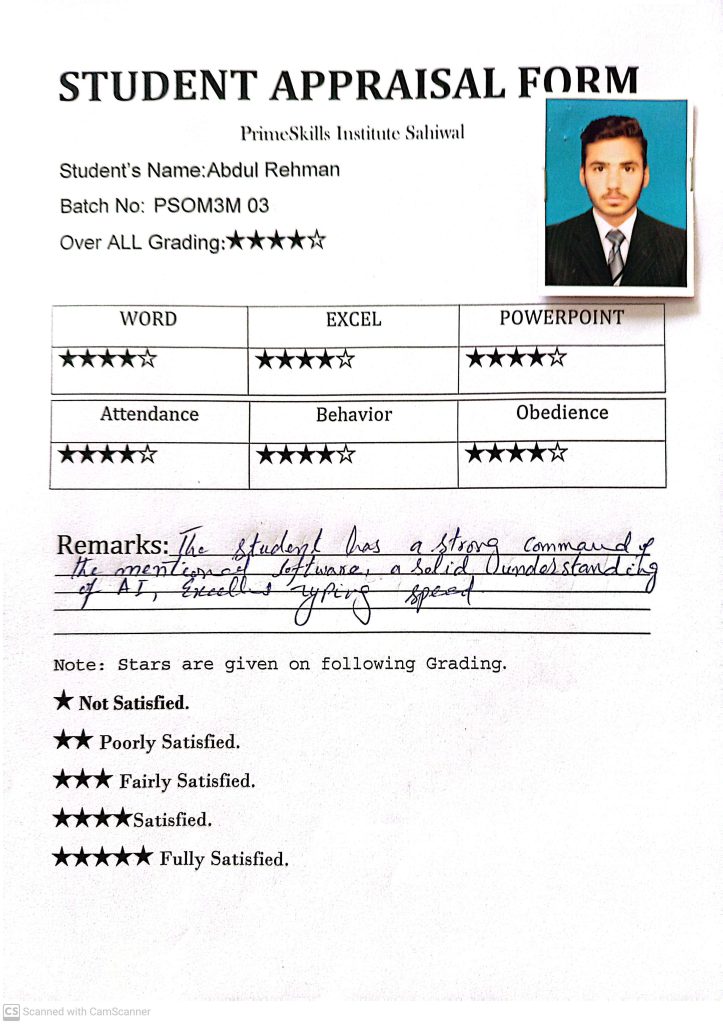 STUDENT APPRAISAL FORM
PrimeSkills Institute Sahiwal
Student's Name:Abdul Rehman
Batch No: PSOM3M 03
Over ALL Grading:★★★★☆
WORD EXCEL POWERPOINT
★★★★☆ ★★★★☆ ★★★★☆
Attendance Behavior Obedience
★★★★☆ ★★★★☆ ★★★★☆
Remarks: The student has a strong command of
the mentioned software, a solid understanding
of AI, typing speed
Note: Stars are given on following Grading.
★ Not Satisfied.
★★ Poorly Satisfied.
★★★ Fairly Satisfied.
★★★★Satisfied.
★★★★★ Fully Satisfied.
CS Scanned with CamScanner